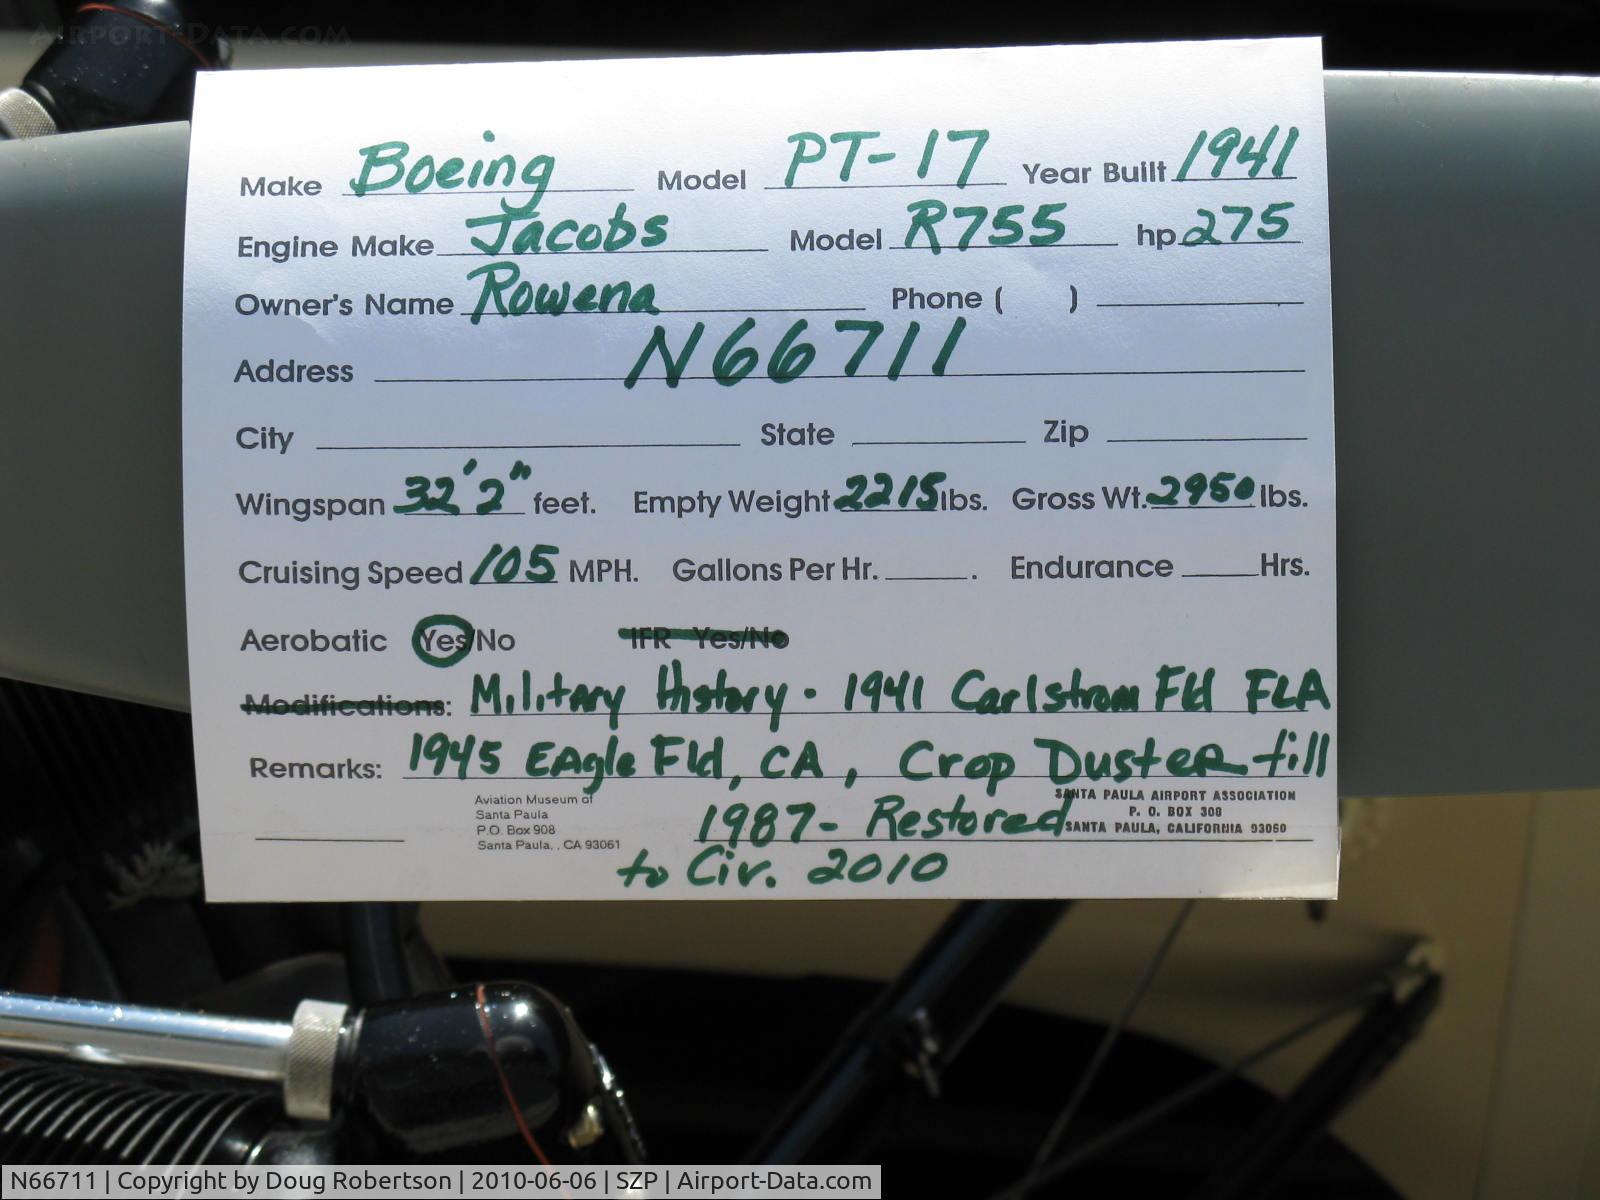 AIRPORT-DATA.COM
Make Boeing Model PT-17 Year Built 1941
Engine Make Jacobs Model R755 hp 275
Owner's Name Rowena Phone ( )
Address N66711
City State Zip
Wingspan 32'2" feet. Empty Weight 2215 lbs. Gross Wt. 2950 lbs.
Cruising Speed 105 MPH. Gallons Per Hr. . Endurance Hrs.
Aerobatic Yes/No IFR Yes/No
Modifications: Military History - 1941 Carlstrom Fld FLA
Remarks: 1945 EAgle Fld, CA, Crop Duster till
1987- Restored
to Civ. 2010
Aviation Museum of
Santa Paula
P.O. Box 908
Santa Paula, , CA 93061
SANTA PAULA AIRPORT ASSOCIATION
P. O. BOX 308
SANTA PAULA, CALIFORNIA 93060
N66711 | Copyright by Doug Robertson | 2010-06-06 | SZP | Airport-Data.com